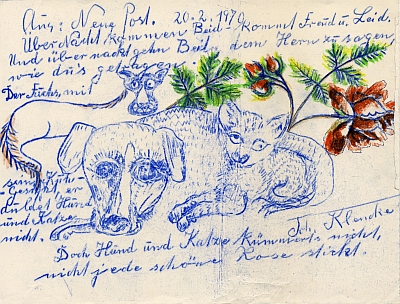 Aus: Neue Post. 20.2.1970
Über Nacht kommen Beid- kommt Freud u. Leid.
Und über nacht gehn Beid dem Herrn zu sagen,
wie du's getragen.
Der Fuchs, mit
seine Kuh-
Gesicht, er
duldet Hund
und Katze
nicht.
Joh. Klencke
Doch Hund und Katze kümmerts nicht,
nicht jede schöne Rose sticht.